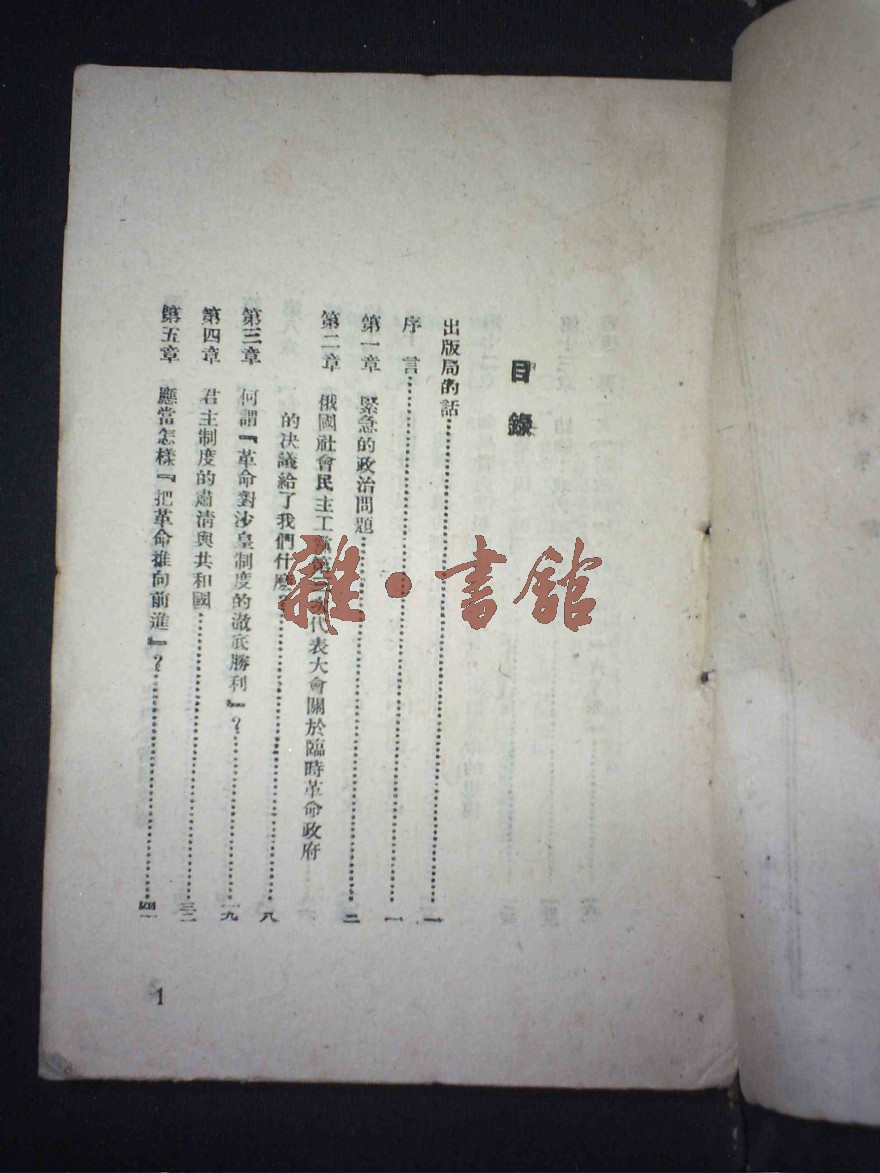 目錄
出版局的話……一
序言……一
第一章 緊急的政治問題……二
第二章 俄國社會民主工黨第三次代表大會關於臨時革命政府
的决議給了我們什麽？……八
第三章 何謂『革命對沙皇制度的澈底勝利』？……一九
第四章 君主制度的肅清與共和國……三二
第五章 應當怎樣『把革命推向前進』？……
1
雜·書館